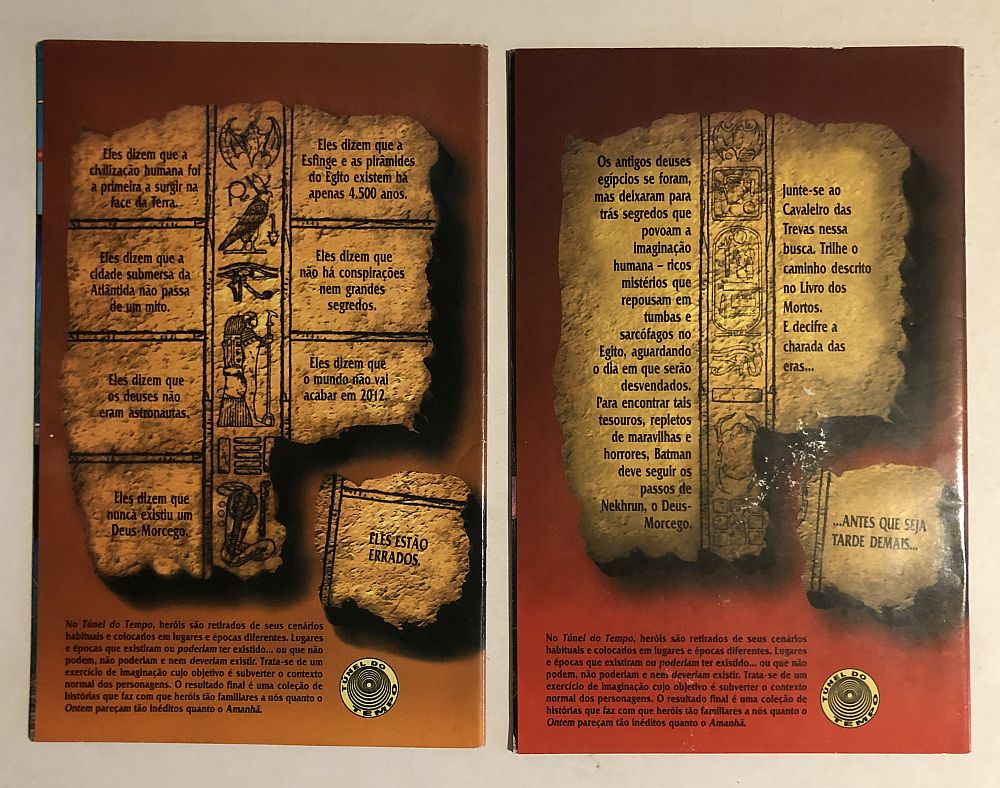 Eles dizem que a
civilização humana foi
a primeira a surgir na
face da Terra.
Eles dizem que a
cidade submersa da
Atlântida não passa
de um mito.
Eles dizem que
os deuses não
eram astronautas.
Eles dizem que
nunca existiu um
Deus-Morcego.
Eles dizem que a
Esfinge e as pirâmides
do Egito existem há
apenas 4.500 anos.
Eles dizem que
não há conspirações
nem grandes
segredos.
Eles dizem que
o mundo não vai
acabar em 2012.
ELES ESTÃO
ERRADOS.
No Túnel do Tempo, heróis são retirados de seus cenários
habituais e colocados em lugares e épocas diferentes. Lugares
e épocas que existiram ou poderiam ter existido... ou que não
podem, não poderiam e nem deveriam existir. Trata-se de um
exercício de imaginação cujo objetivo é subverter o contexto
normal dos personagens. O resultado final é uma coleção de
histórias que faz com que heróis tão familiares a nós quanto o
Ontem pareçam tão inéditos quanto o Amanhã.
TÚNEL DO
TEMPO
Os antigos deuses
egípcios se foram,
mas deixaram para
trás segredos que
povoam a
imaginação
humana – ricos
mistérios que
repousam em
tumbas e
sarcófagos no
Egito, aguardando
o dia em que serão
desvendados.
Para encontrar tais
tesouros, repletos
de maravilhas e
horrores, Batman
deve seguir os
passos de
Nekhrun, o Deus-
Morcego.
Junte-se ao
Cavaleiro das
Trevas nessa
busca. Trilhe o
caminho descrito
no Livro dos
Mortos.
E decifre a
charada das
eras...
...ANTES QUE SEJA
TARDE DEMAIS...
No Túnel do Tempo, heróis são retirados de seus cenários
habituais e colocados em lugares e épocas diferentes. Lugares
e épocas que existiram ou poderiam ter existido... ou que não
podem, não poderiam e nem deveriam existir. Trata-se de um
exercício de imaginação cujo objetivo é subverter o contexto
normal dos personagens. O resultado final é uma coleção de
histórias que faz com que heróis tão familiares a nós quanto o
Ontem pareçam tão inéditos quanto o Amanhã.
TÚNEL DO
TEMPO